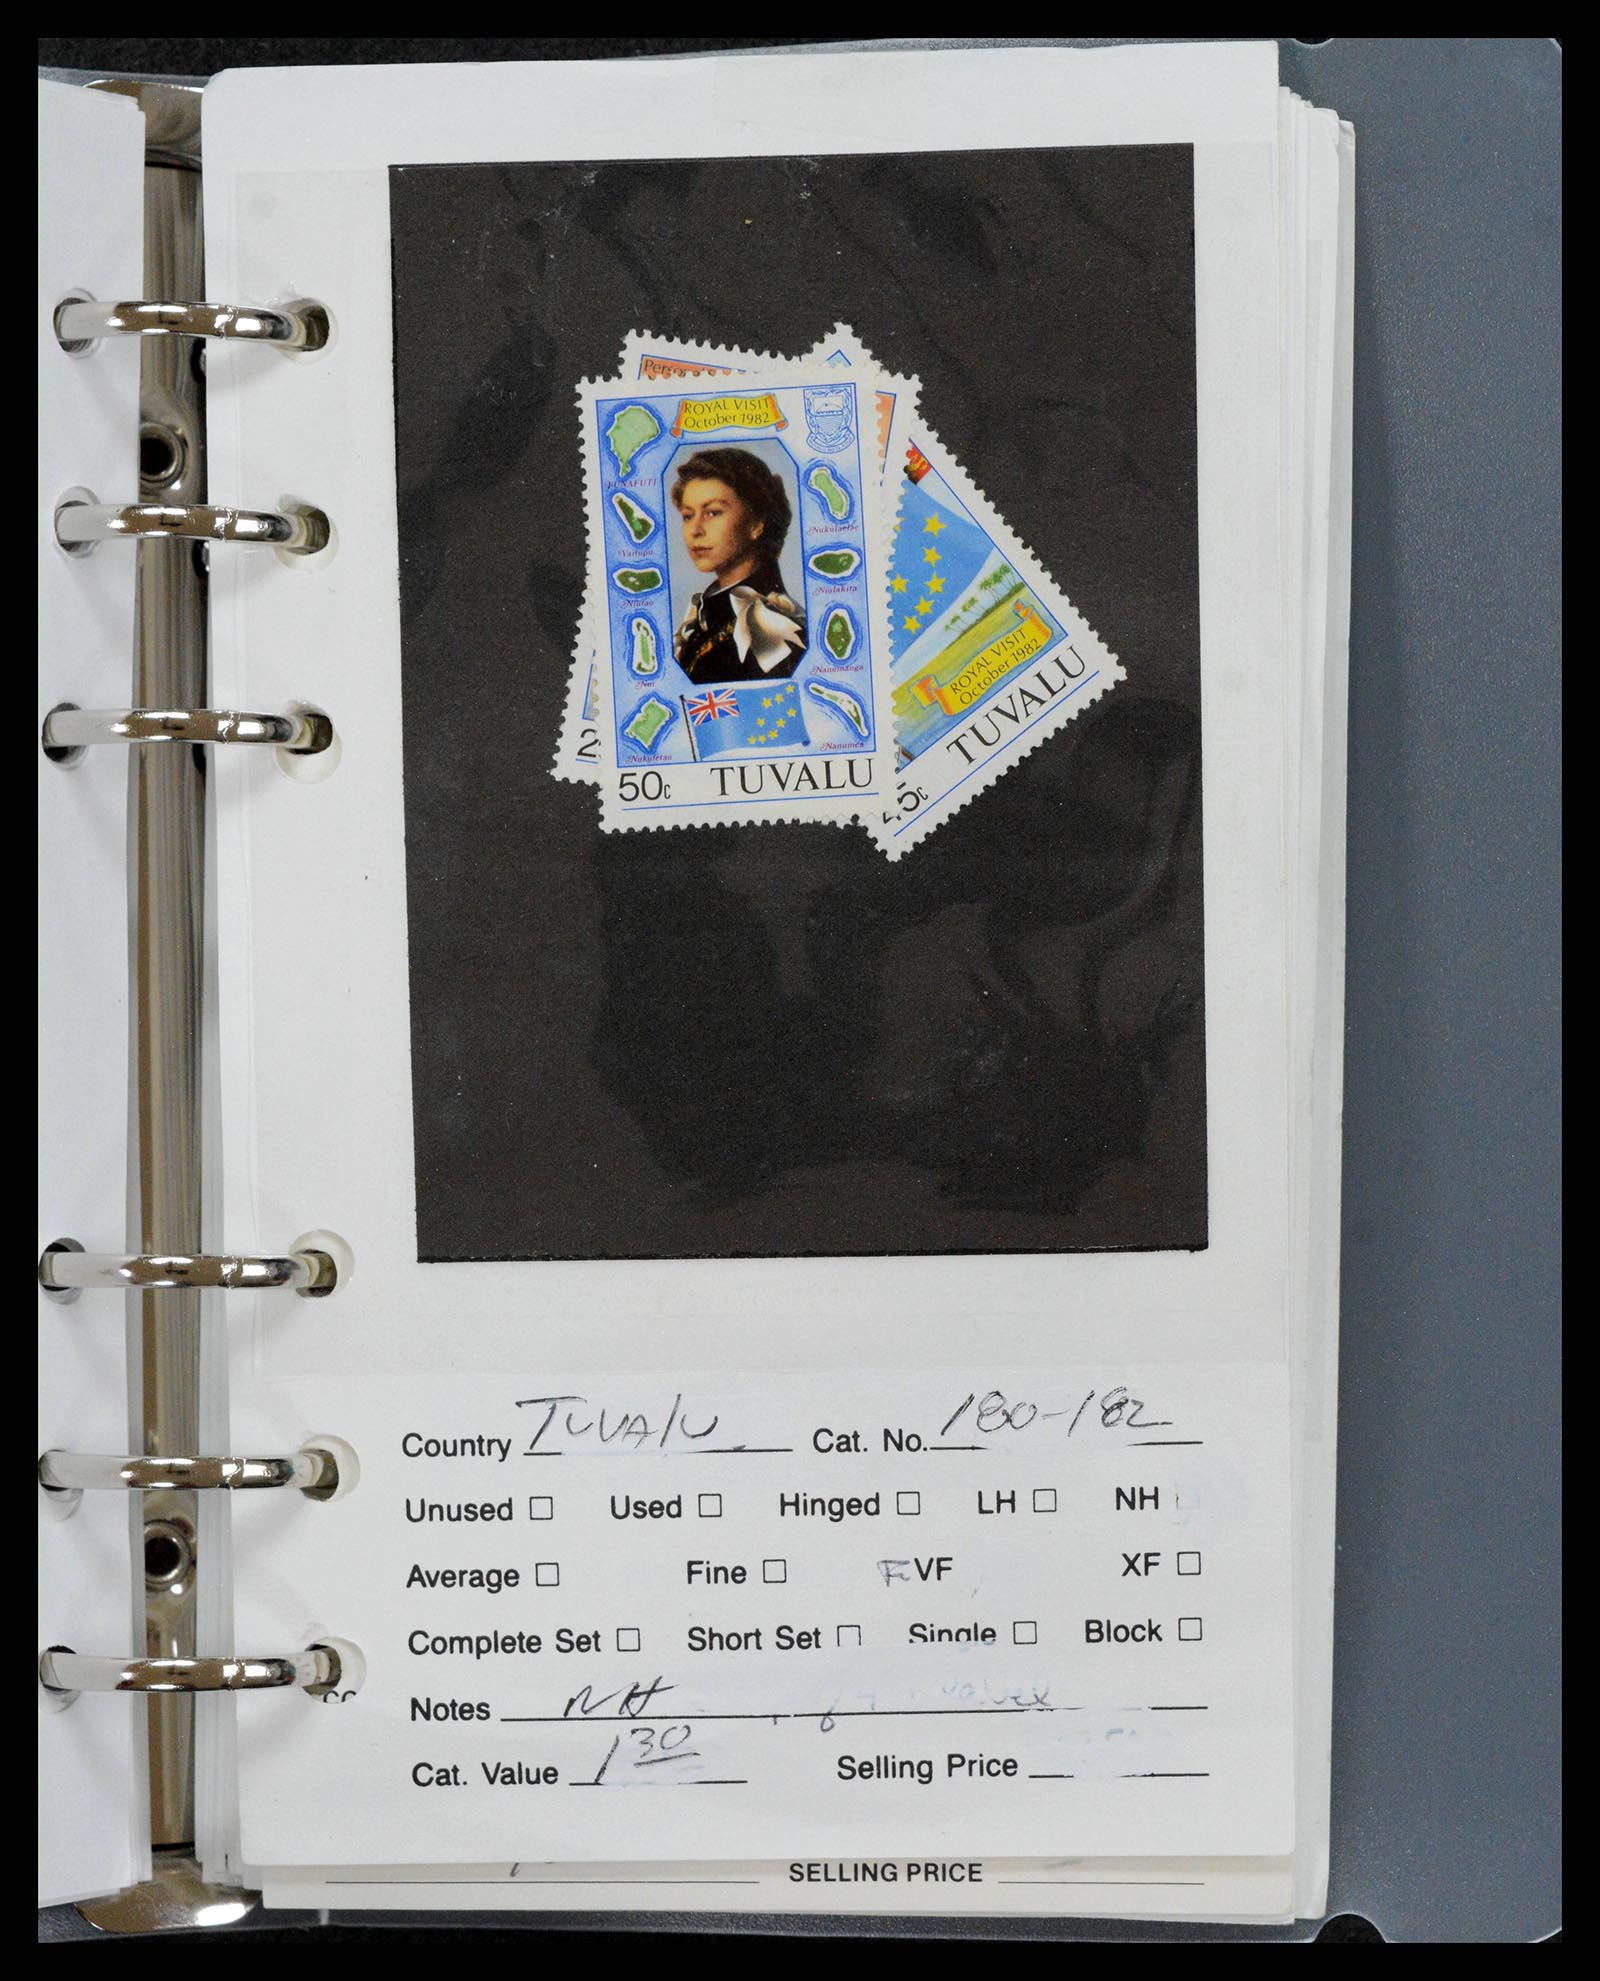 Pers
ROYAL VISIT
October 1982
FUNAFUTI
Vaitupu
Niutao
Nui
Nukufetau
Nukulaelae
Niulakita
Nanumanga
Nanumea
50c TUVALU
2
ROYAL VISIT
October 1982
TUVALU
45c
Country TUVALU Cat. No. 180-182
Unused Used Hinged LH NH
Average Fine F VF XF
Complete Set Short Set Single Block
Notes NH
Cat. Value 1 30 Selling Price
SELLING PRICE